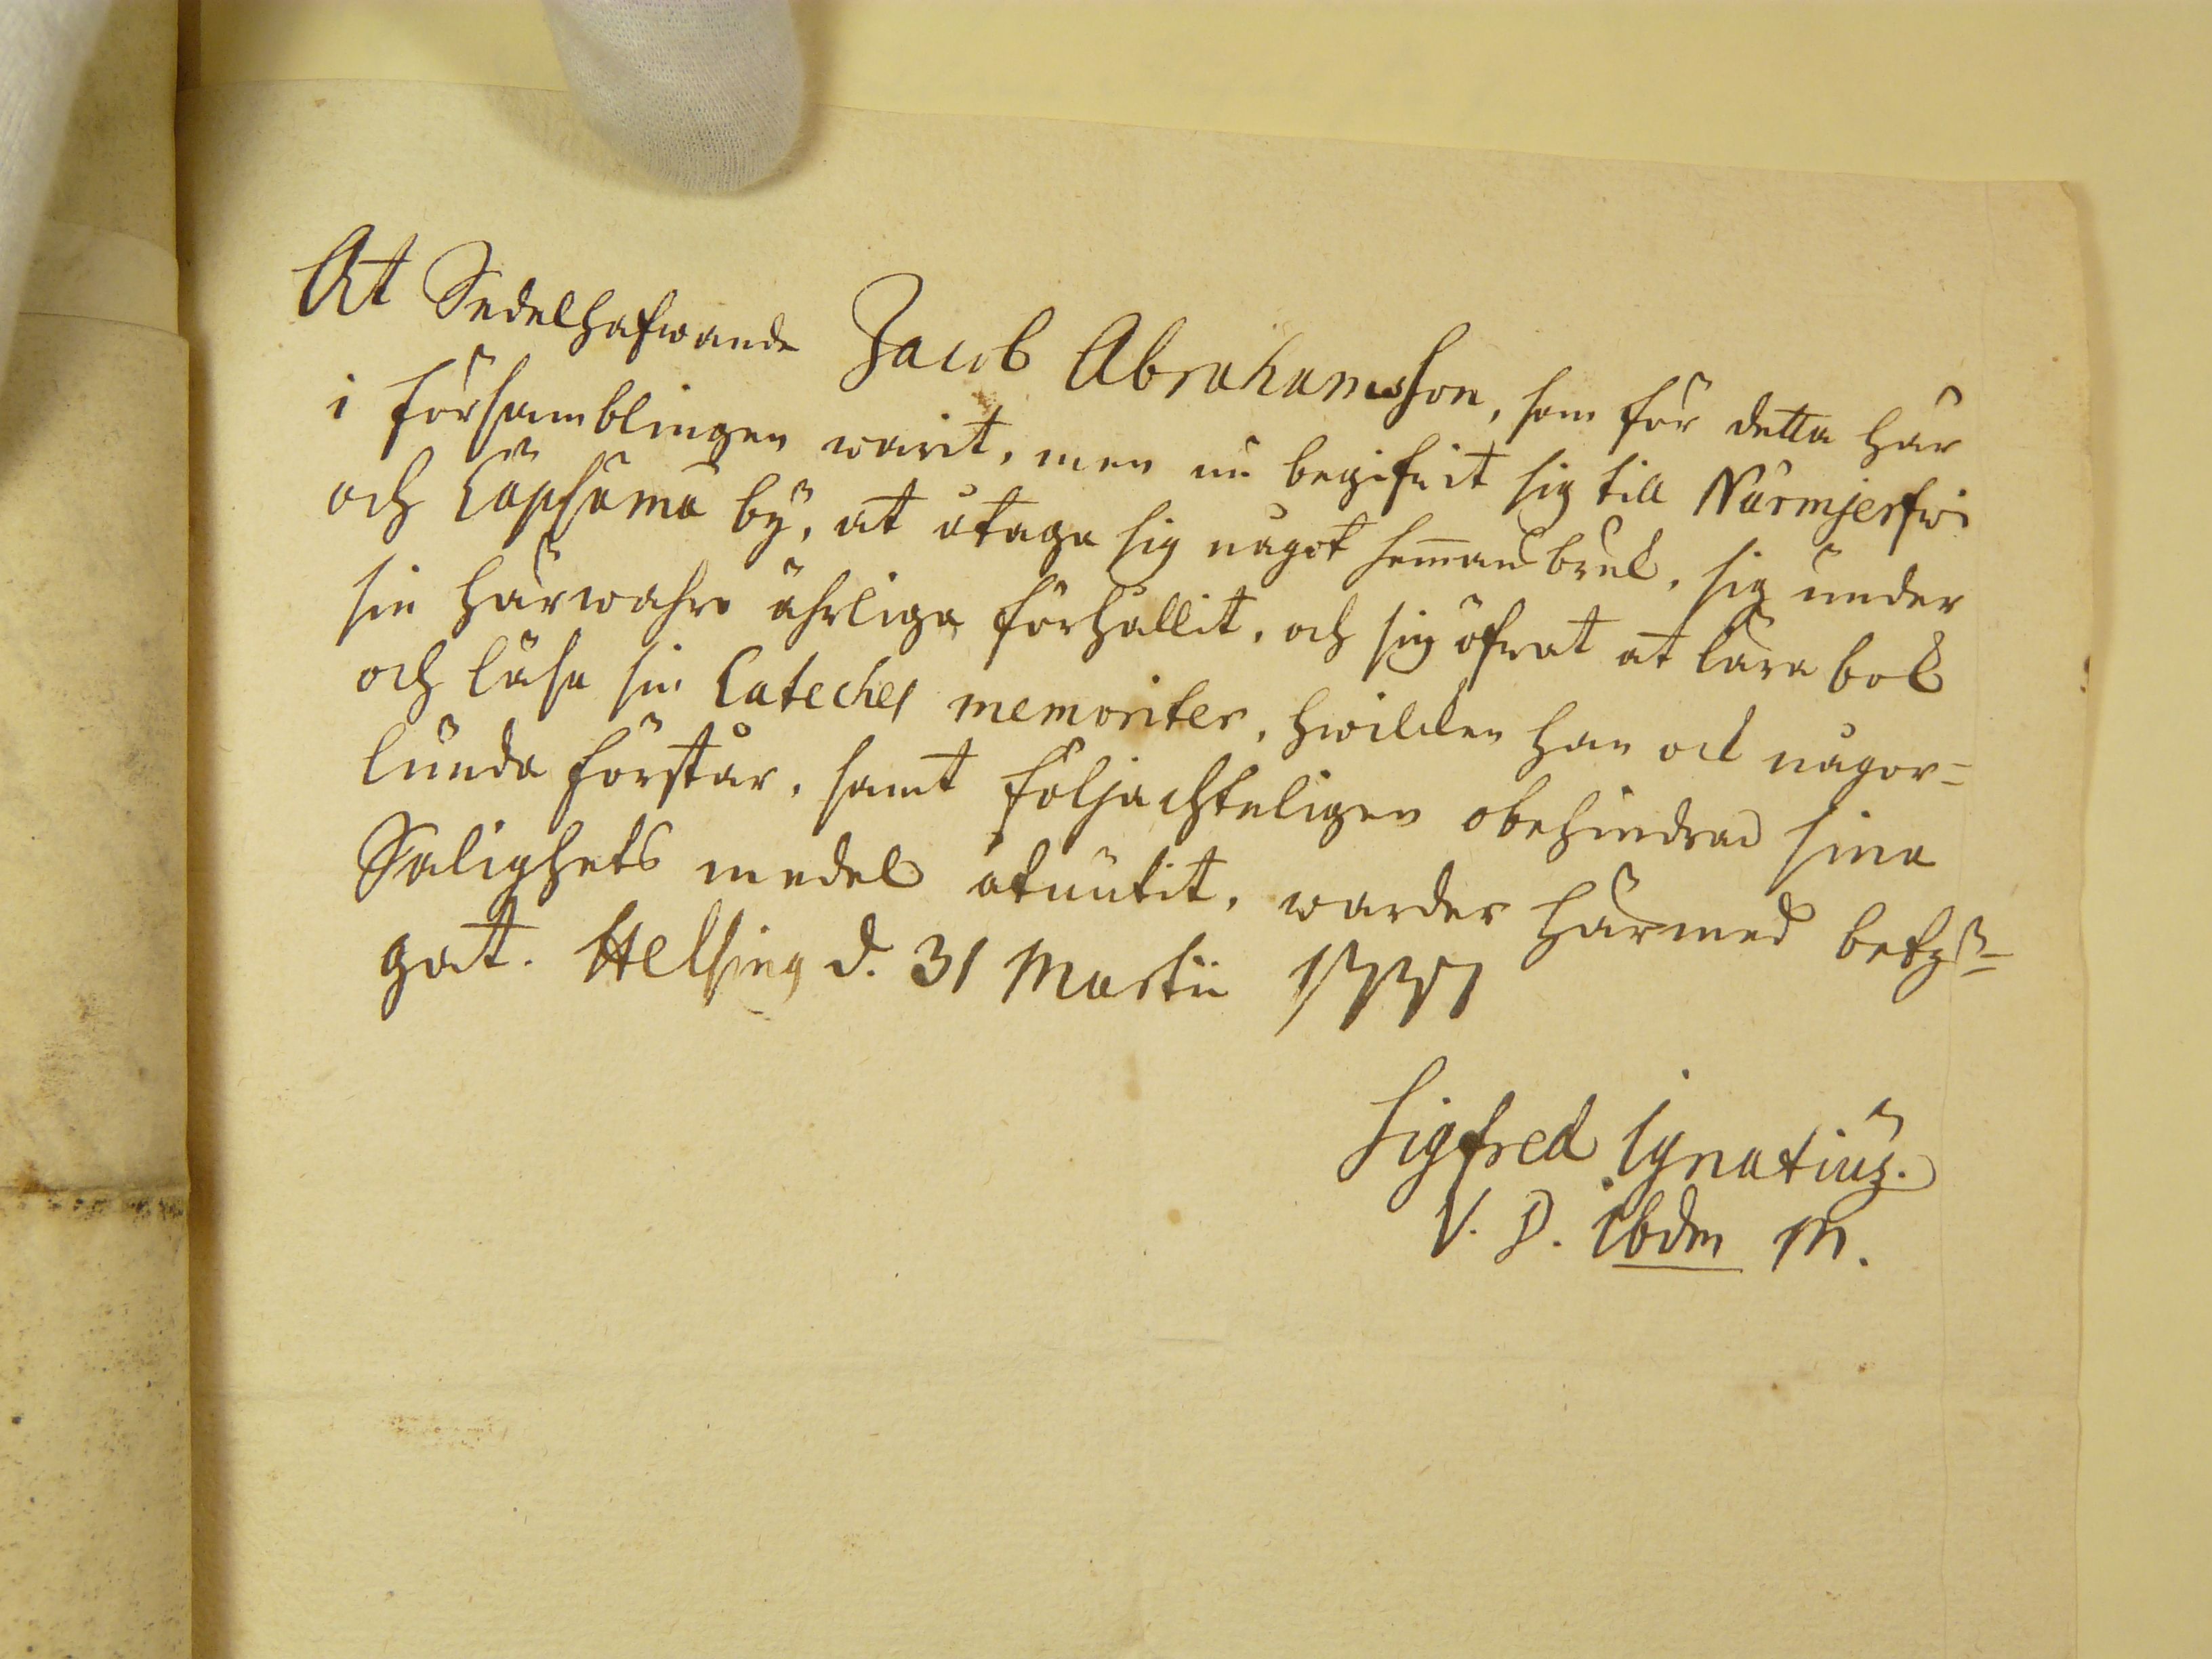 At Sedelhafwande Jacob Abrahamsson, som för detta här
i församblingen warit, men nu begifwit sig till Nurmjerfwi
och Lopsama by, at åtaga sig något hemans bruk, sig under
sin härwahro ährliga förhållit, och sig öfwat at lära bok
och läsa sin Cateches memoriter, hwilcken han ock någor=
lunda förstår, samt följachteligen obehindrad sina
Salighets medel åtnutit, warder härmed betyg=
gat. Helsing d. 31 Martii
Sigfred Ignatius.
V. D. ibdm M.